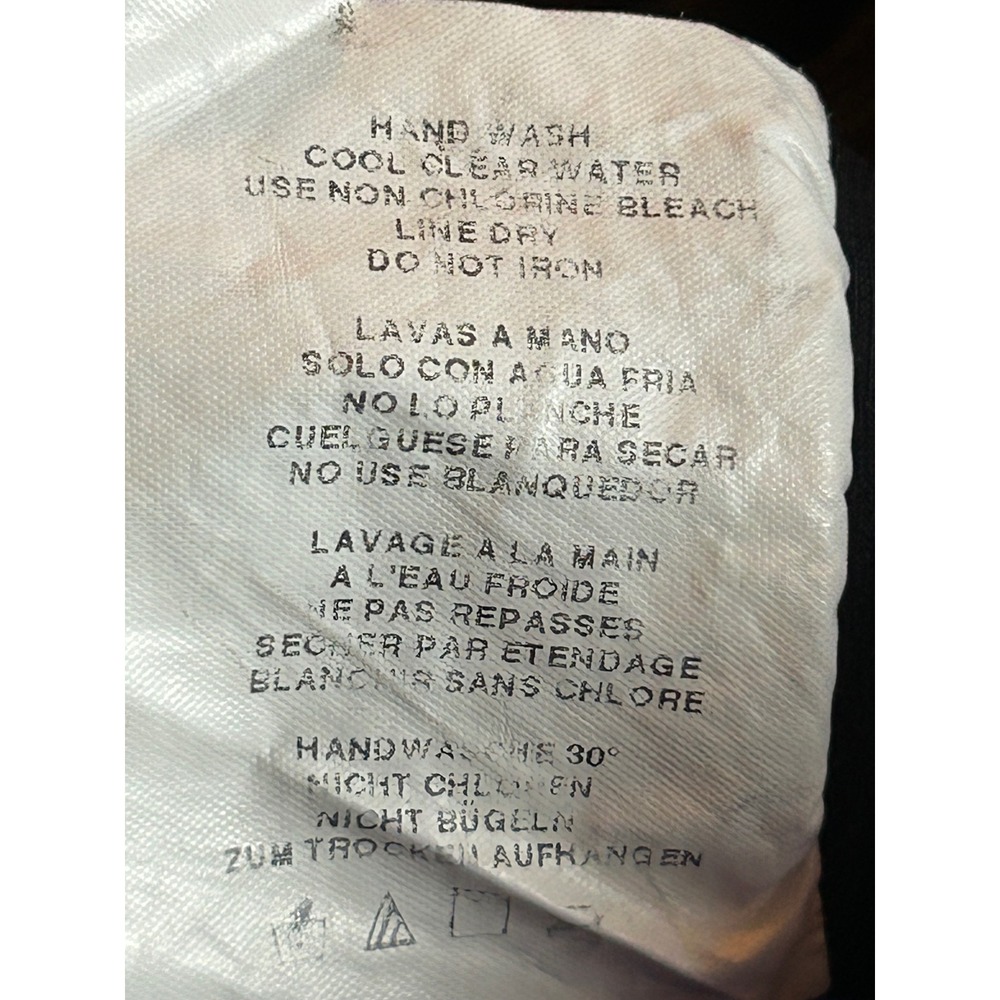 HAND WASH
COOL CLEAR WATER
USE NON CHLORINE BLEACH
LINE DRY
DO NOT IRON
LAVAS A MANO
SOLO CON AGUA FRIA
NO LO PLANCHE
CUELGUESE PARA SECAR
NO USE BLANQUEDOR
LAVAGE A LA MAIN
A L'EAU FROIDE
NE PAS REPASSES
SECHER PAR ETENDAGE
BLANCHIR SANS CHLORE
HANDWASCHE 30°
NICHT CHLOREN
NICHT BÜGELN
ZUM TROCKEN AUFHANGEN